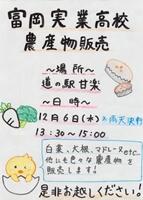 富岡実業高校
農産物販売
～場所～
道の駅 甘楽
～日時～
12月6日(水)※雨天決行
13:30～15:00
白菜、大根、マドレーヌetc…
他にも色々な農産物を
販売します！
是非お越しください！